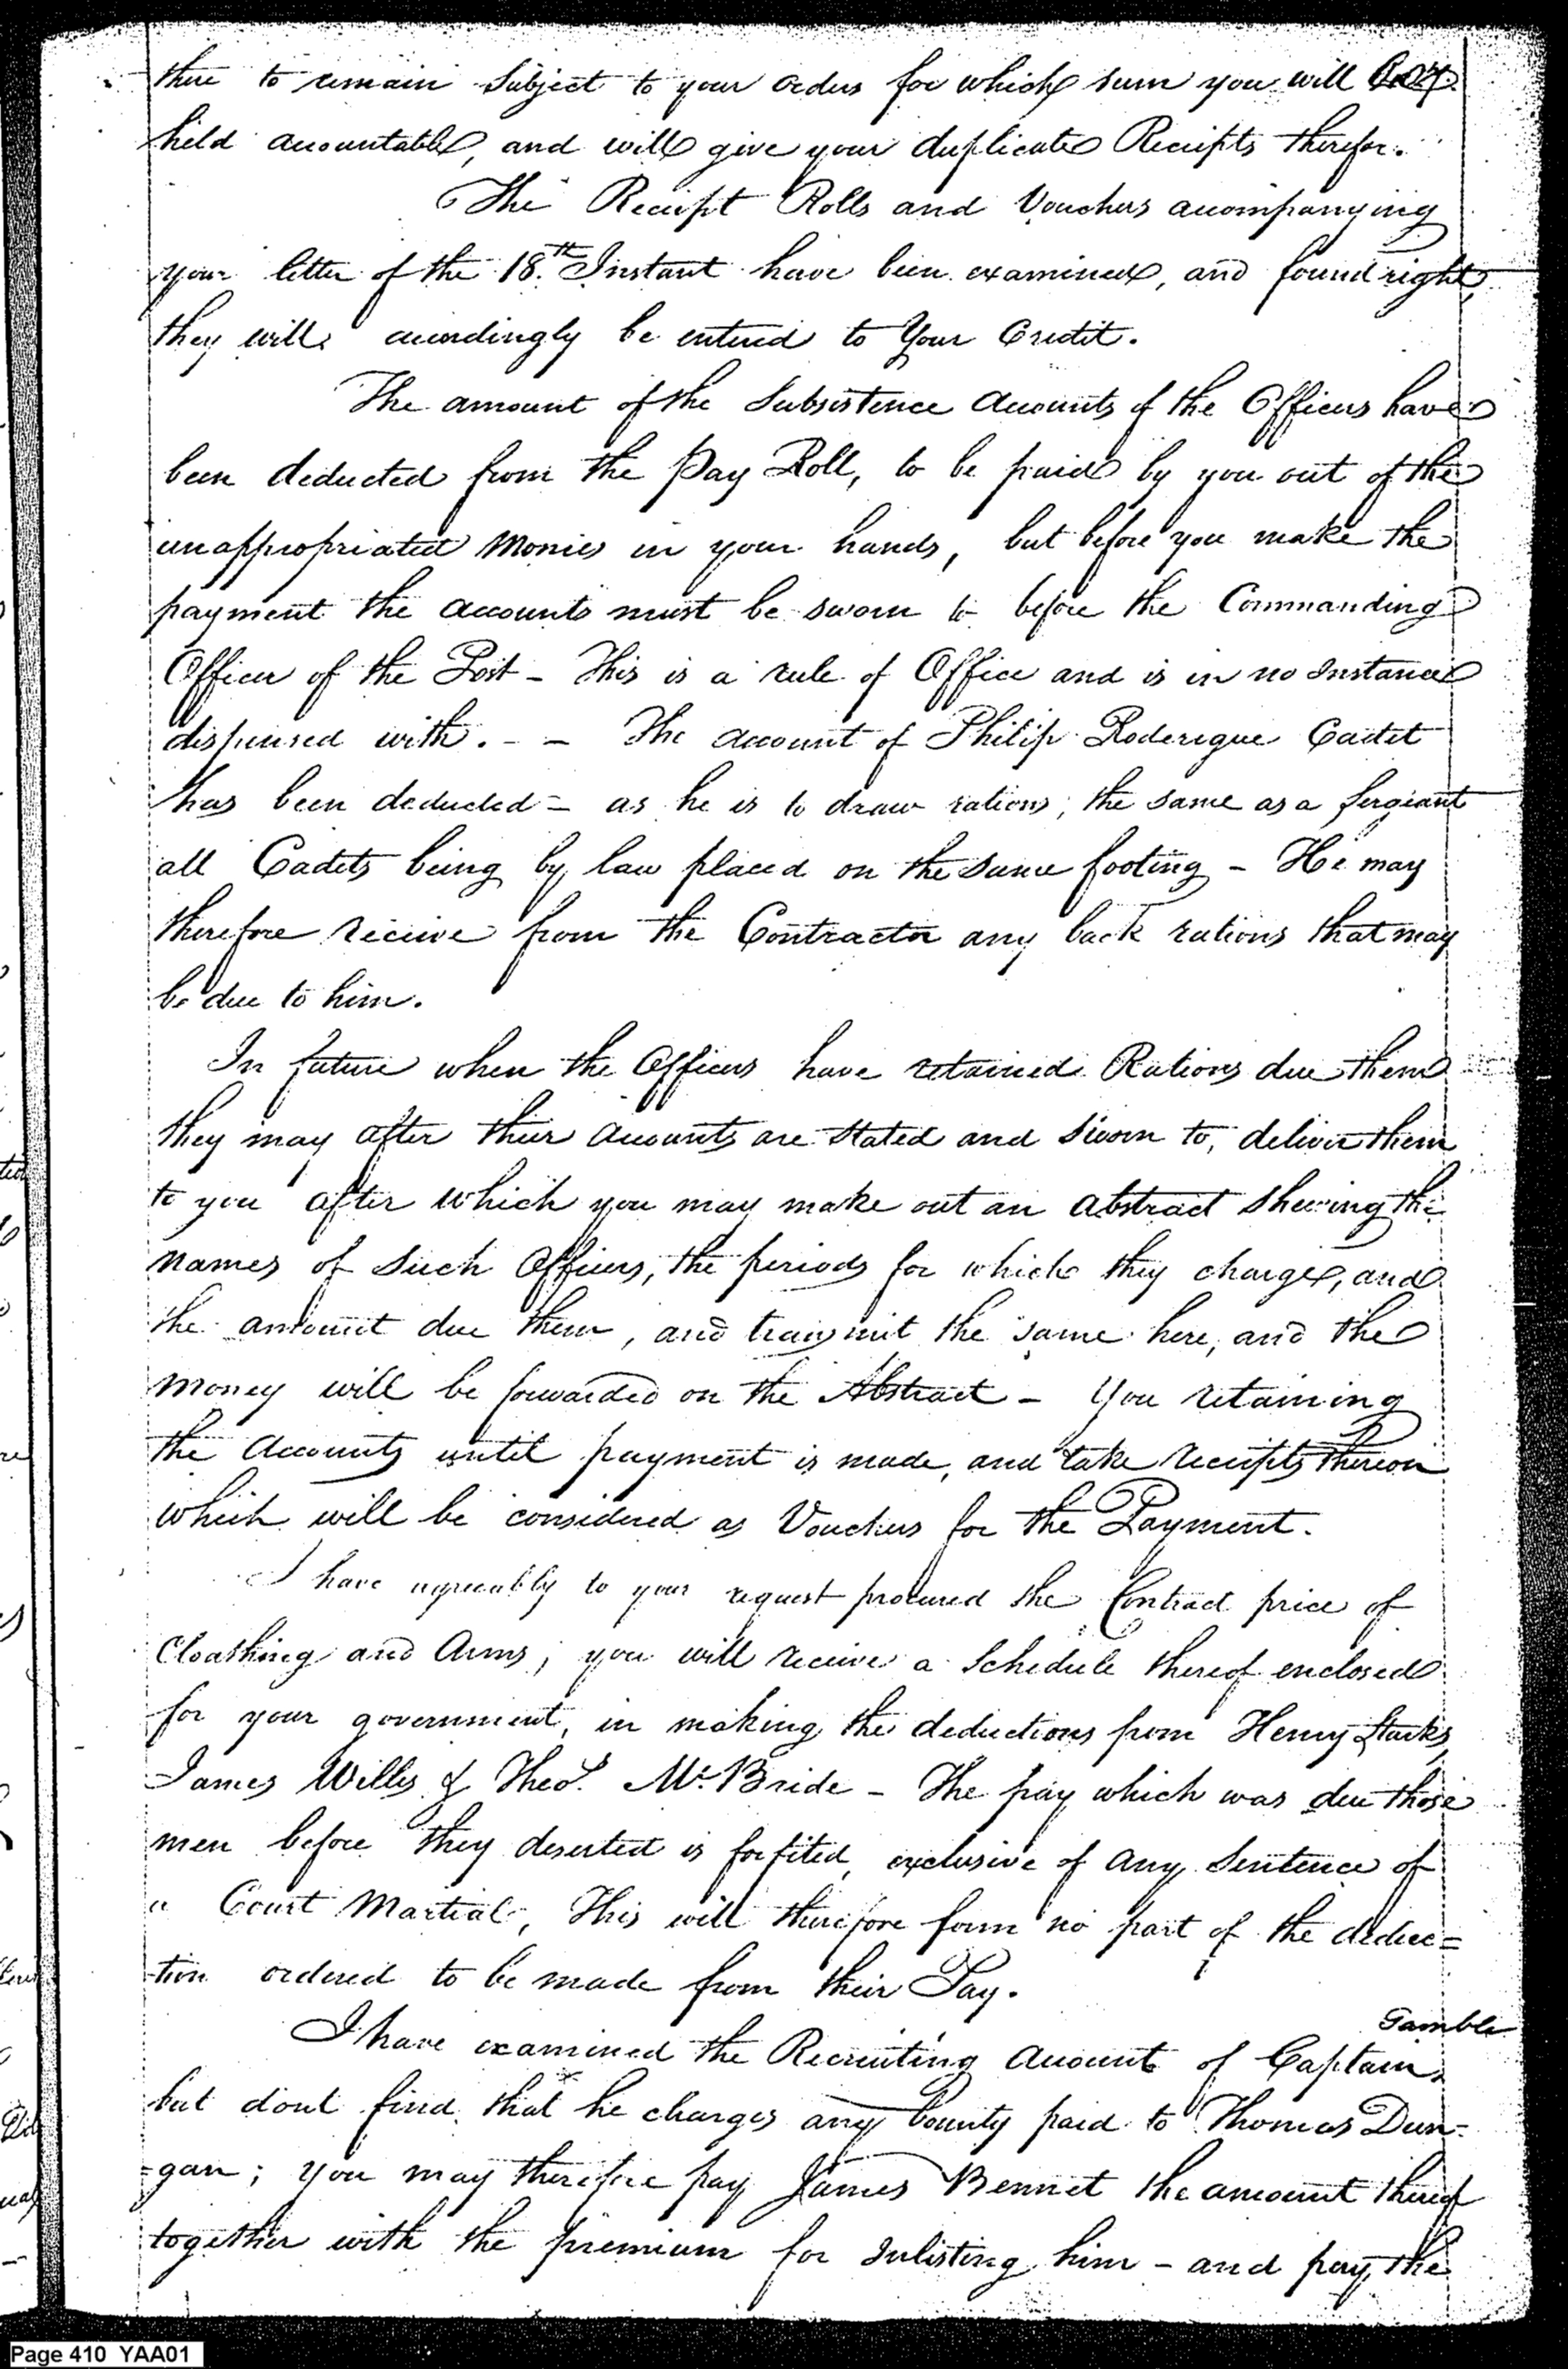 there to remain Subject to your orders for which sum you will be
held accountable, and will give your duplicate Receipts therefor.
The Receipt Rolls and Vouchers accompanying
your letter of the 18th Instant have been examined, and found right,
they will accordingly be entered to Your Credit.
The amount of the Subsistence Accounts of the Officers have
been deducted from the Pay Roll, to be paid by you out of the
unappropriated Monies in your hands, but before you make the
payment the accounts must be sworn to before the Commanding
Officer of the Post - This is a rule of Office and is in no Instance
dispensed with. - - The account of Philip Roderigue Cadet
has been deducted - as he is to draw rations, the same as a Sergeant
all Cadets being by law placed on the same footing - He may
therefore receive from the Contractor any back rations that may
be due to him.
In future when the Officers have retained Rations due them
they may after their Accounts are Stated and Sworn to, deliver them
to you after which you may make out an Abstract Shewing the
names of Such Officers, the periods for which they charge, and
the amount due them, and transmit the same here, and the
money will be forwarded on the Abstract - You retaining
the Accounts until payment is made, and take receipts thereon
which will be considered as Vouchers for the Payment.
I have agreeably to your request procured the Contract price of
Cloathing and Arms; you will receive a Schedule thereof enclosed
for your government, in making the deductions from Henry Starks,
James Willis & Theos. Mc.Bride - The pay which was due those
men before they deserted is forfited, exclusive of any Sentence of
a Court Martial, This will therefore form no part of the deduc=
-tion ordered to be made from their Pay.
Gamble
I have examined the Recruiting Account of Captain,
but dont find that he charges any bounty paid to Thomas Dun-
=gan; you may therefore pay James Bennet the amount thereof
together with the premium for Inlisting him - and pay the
Page 410 YAA01